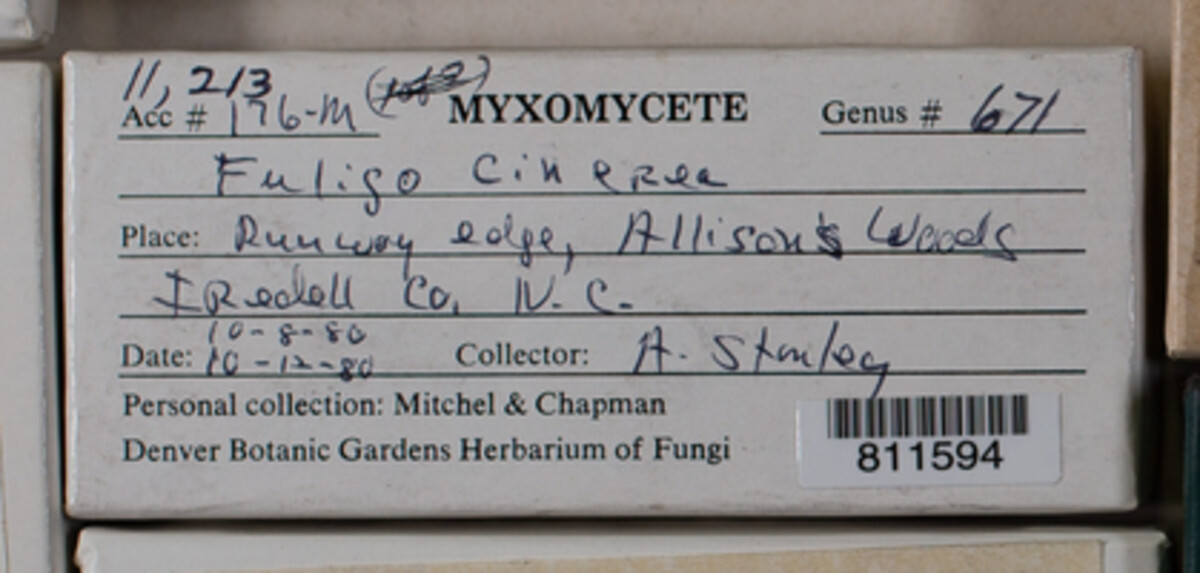 11,213
Acc # 176-M MYXOMYCETE Genus # 671
Fuligo cinerea
Place: Runway edge, Allison's Woods
Iredell Co, N.C.
10-8-80
Date: 10-12-80 Collector: A. Stanley
Personal collection: Mitchel & Chapman
Denver Botanic Gardens Herbarium of Fungi
811594